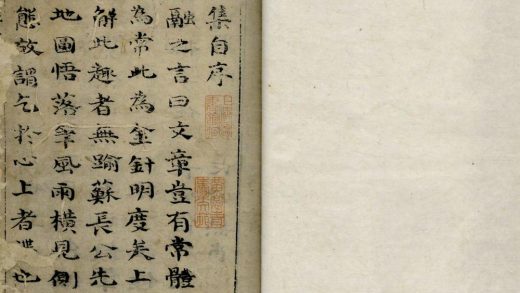 集自序
融之言曰文章豈有常體
為常此為金針明度矣上
解此趣者無踰蘇長公先
地圓悟落筆風雨橫見側
態故謂於心上者也